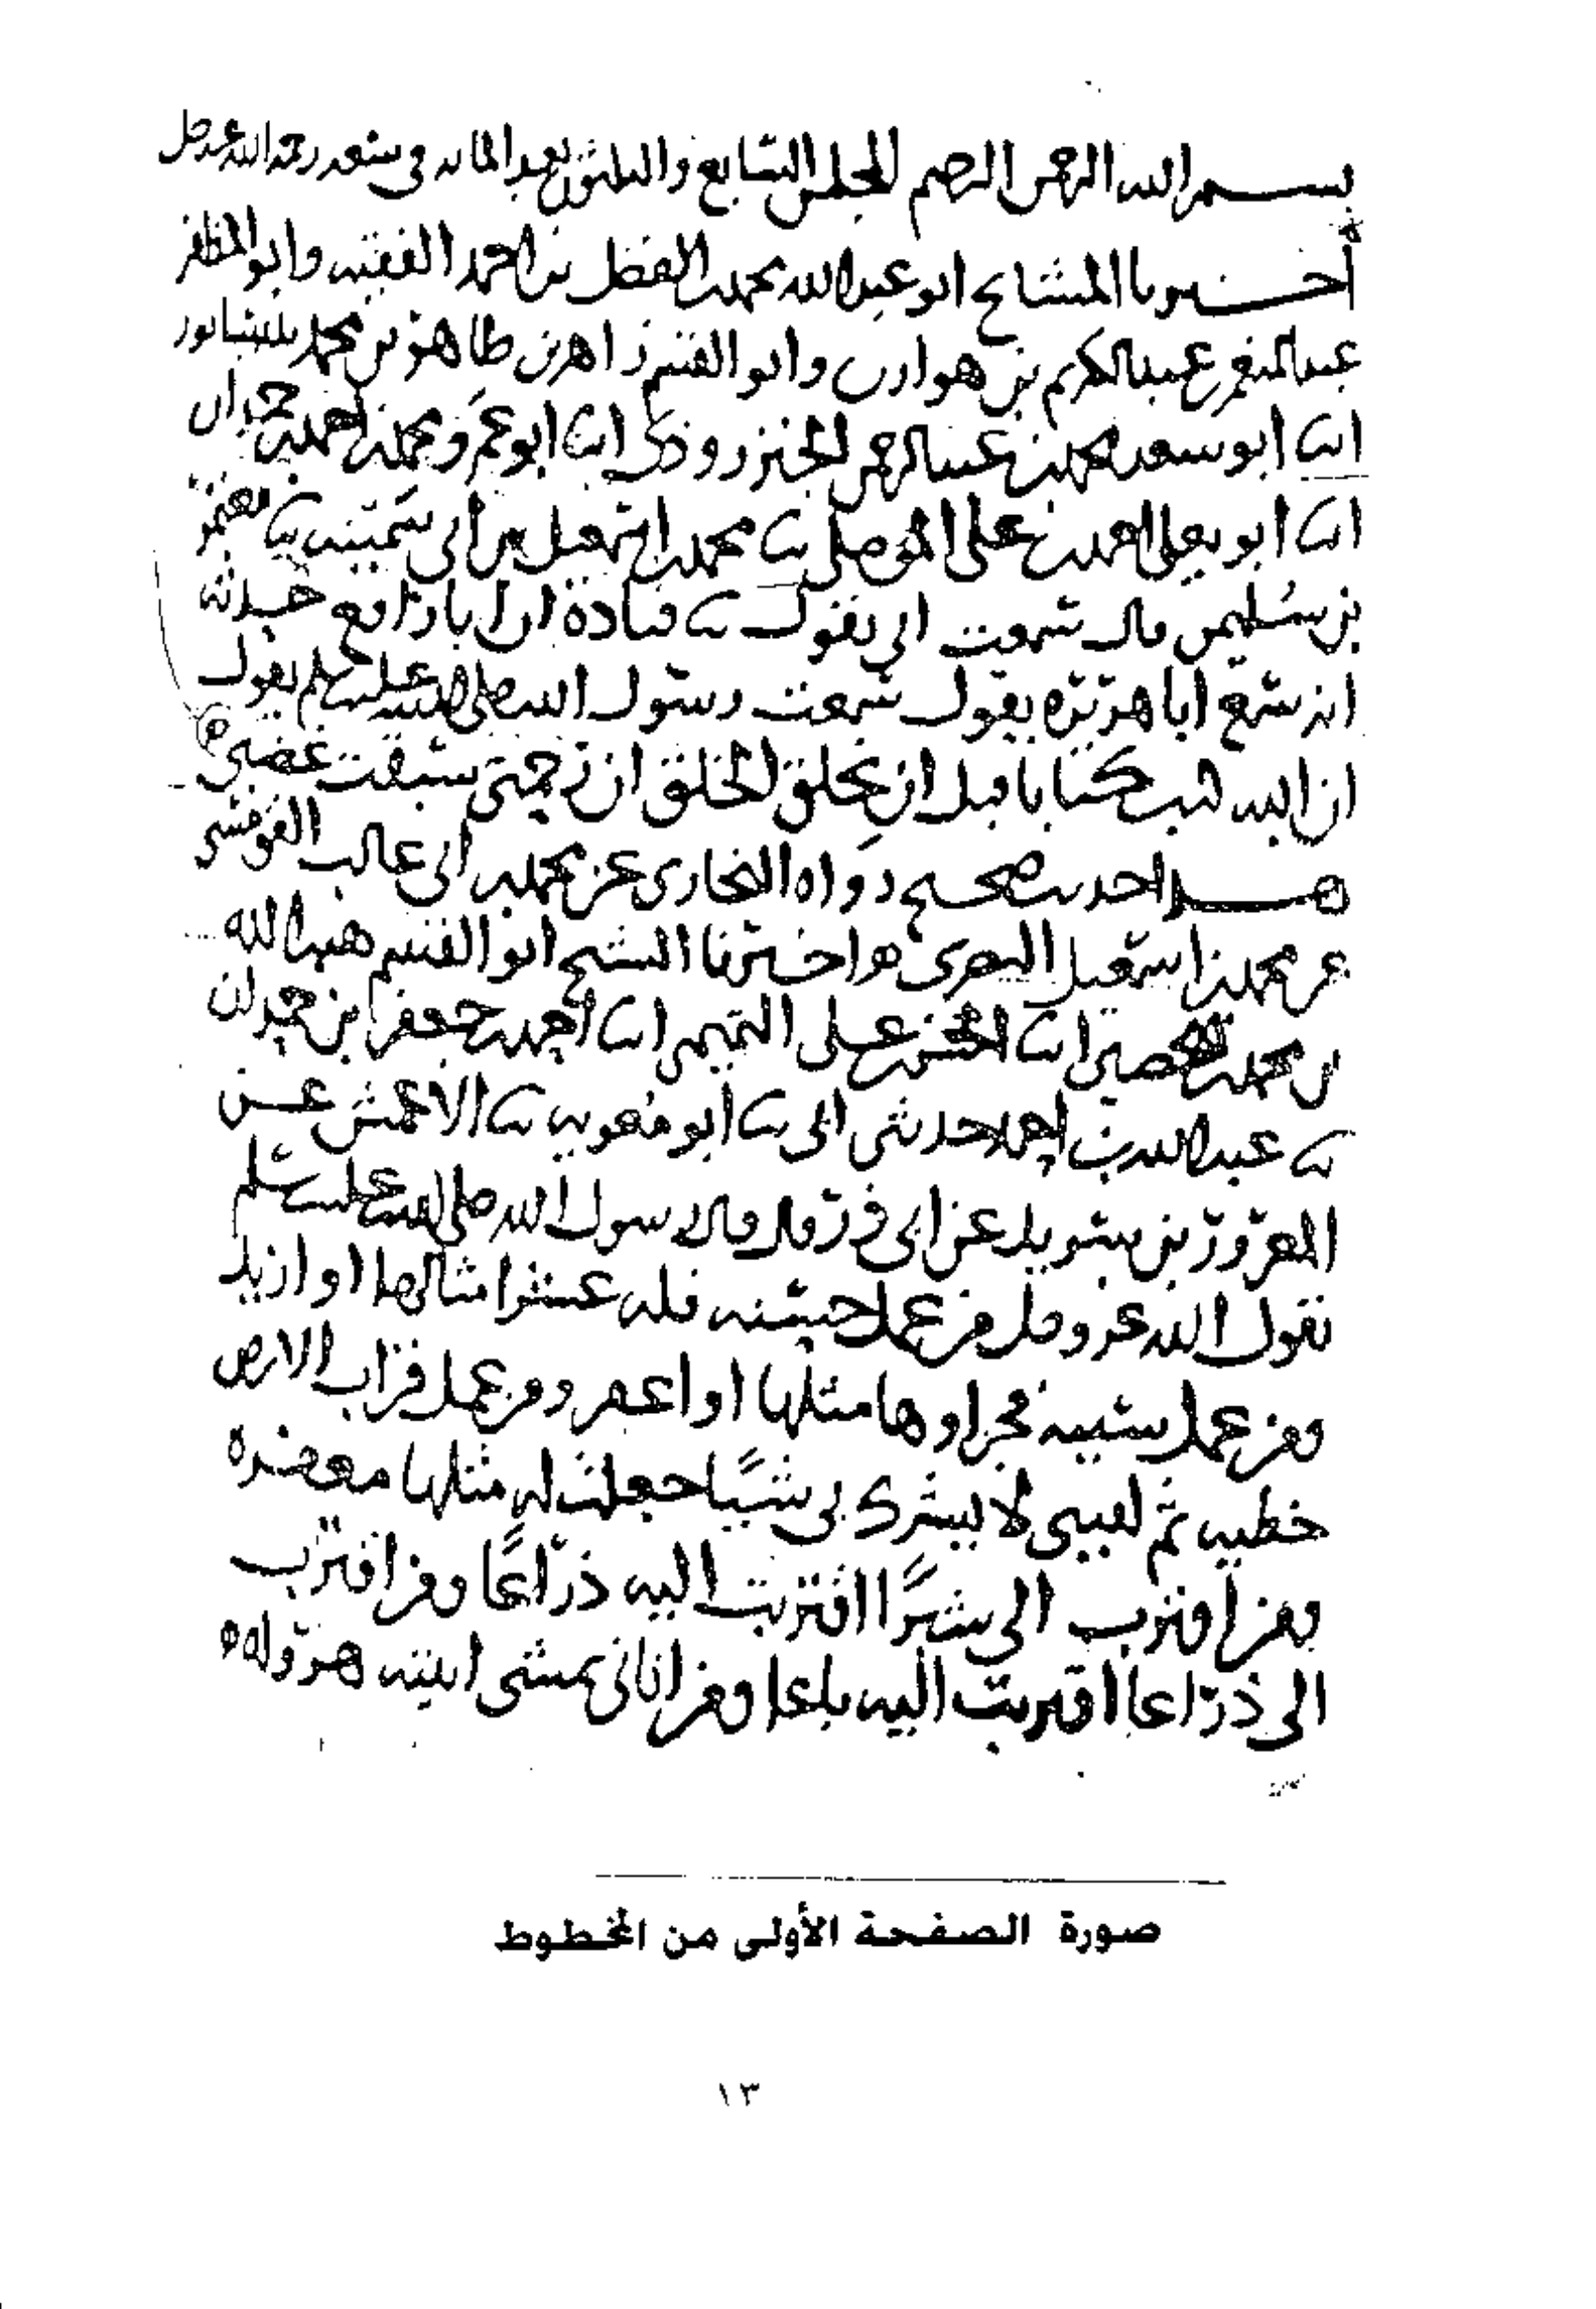 بسم الله الرحمن الرحيم المجلس السابع والثلثون بعد المائه في سعه رحمه الله عز وجل
أخبرنا المشايخ ابو عبد الله محمد بن الفضل بن احمد الفقيه وابو المظفر
عبد المنعم بن عبد الكريم بن هوازن وابو القسم زاهر بن طاهر بن محمد بنيسابور
انا ابو سعد محمد بن عبد الرحمن الجنزروذي انا ابو عمرو محمد بن احمد بن حمدان
انا ابو يعلى احمد بن على الموصلي نا محمد بن اسمعيل بن ابي سمينه نا معتمر
بن سليمن قال سمعت ابي يقول نا قتادة ان ابا رافع حدثه
انه سمع ابا هريره يقول سمعت رسول الله صلى الله عليه وسلم يقول
ان الله كتب كتابا قبل ان يخلق الخلق ان رحمتي سبقت غضبي ه
هذا حديث صحيح رواه البخارى عن محمد بن ابي غالب القومسي
عن محمد بن اسمعيل البصرى ه واخبرنا الشيخ ابو القسم هبه الله
بن محمد بن الحصين انا الحسن بن على التميمي انا احمد بن جعفر بن حمدان
نا عبد الله بن احمد حدثني ابي نا ابو معويه نا الاعمش عن
المعرور بن سويد عن ابي ذر قال قال رسول الله صلى الله عليه وسلم
يقول الله عز وجل من عمل حسنه فله عشر امثالها او ازيد
ومن عمل سيئه فجزاوها مثلها او اغفر ومن عمل قراب الارض
خطيه ثم لقيني لا يشرك بي شيًا جعلت له مثلها مغفره
ومن اقترب الي شبرًا اقتربت اليه ذراعًا ومن اقترب
الى ذراعا اقتربت اليه باعا ومن اتاني يمشي اتيته هروله ه
صورة الصفحة الأولى من المخطوط
١٣